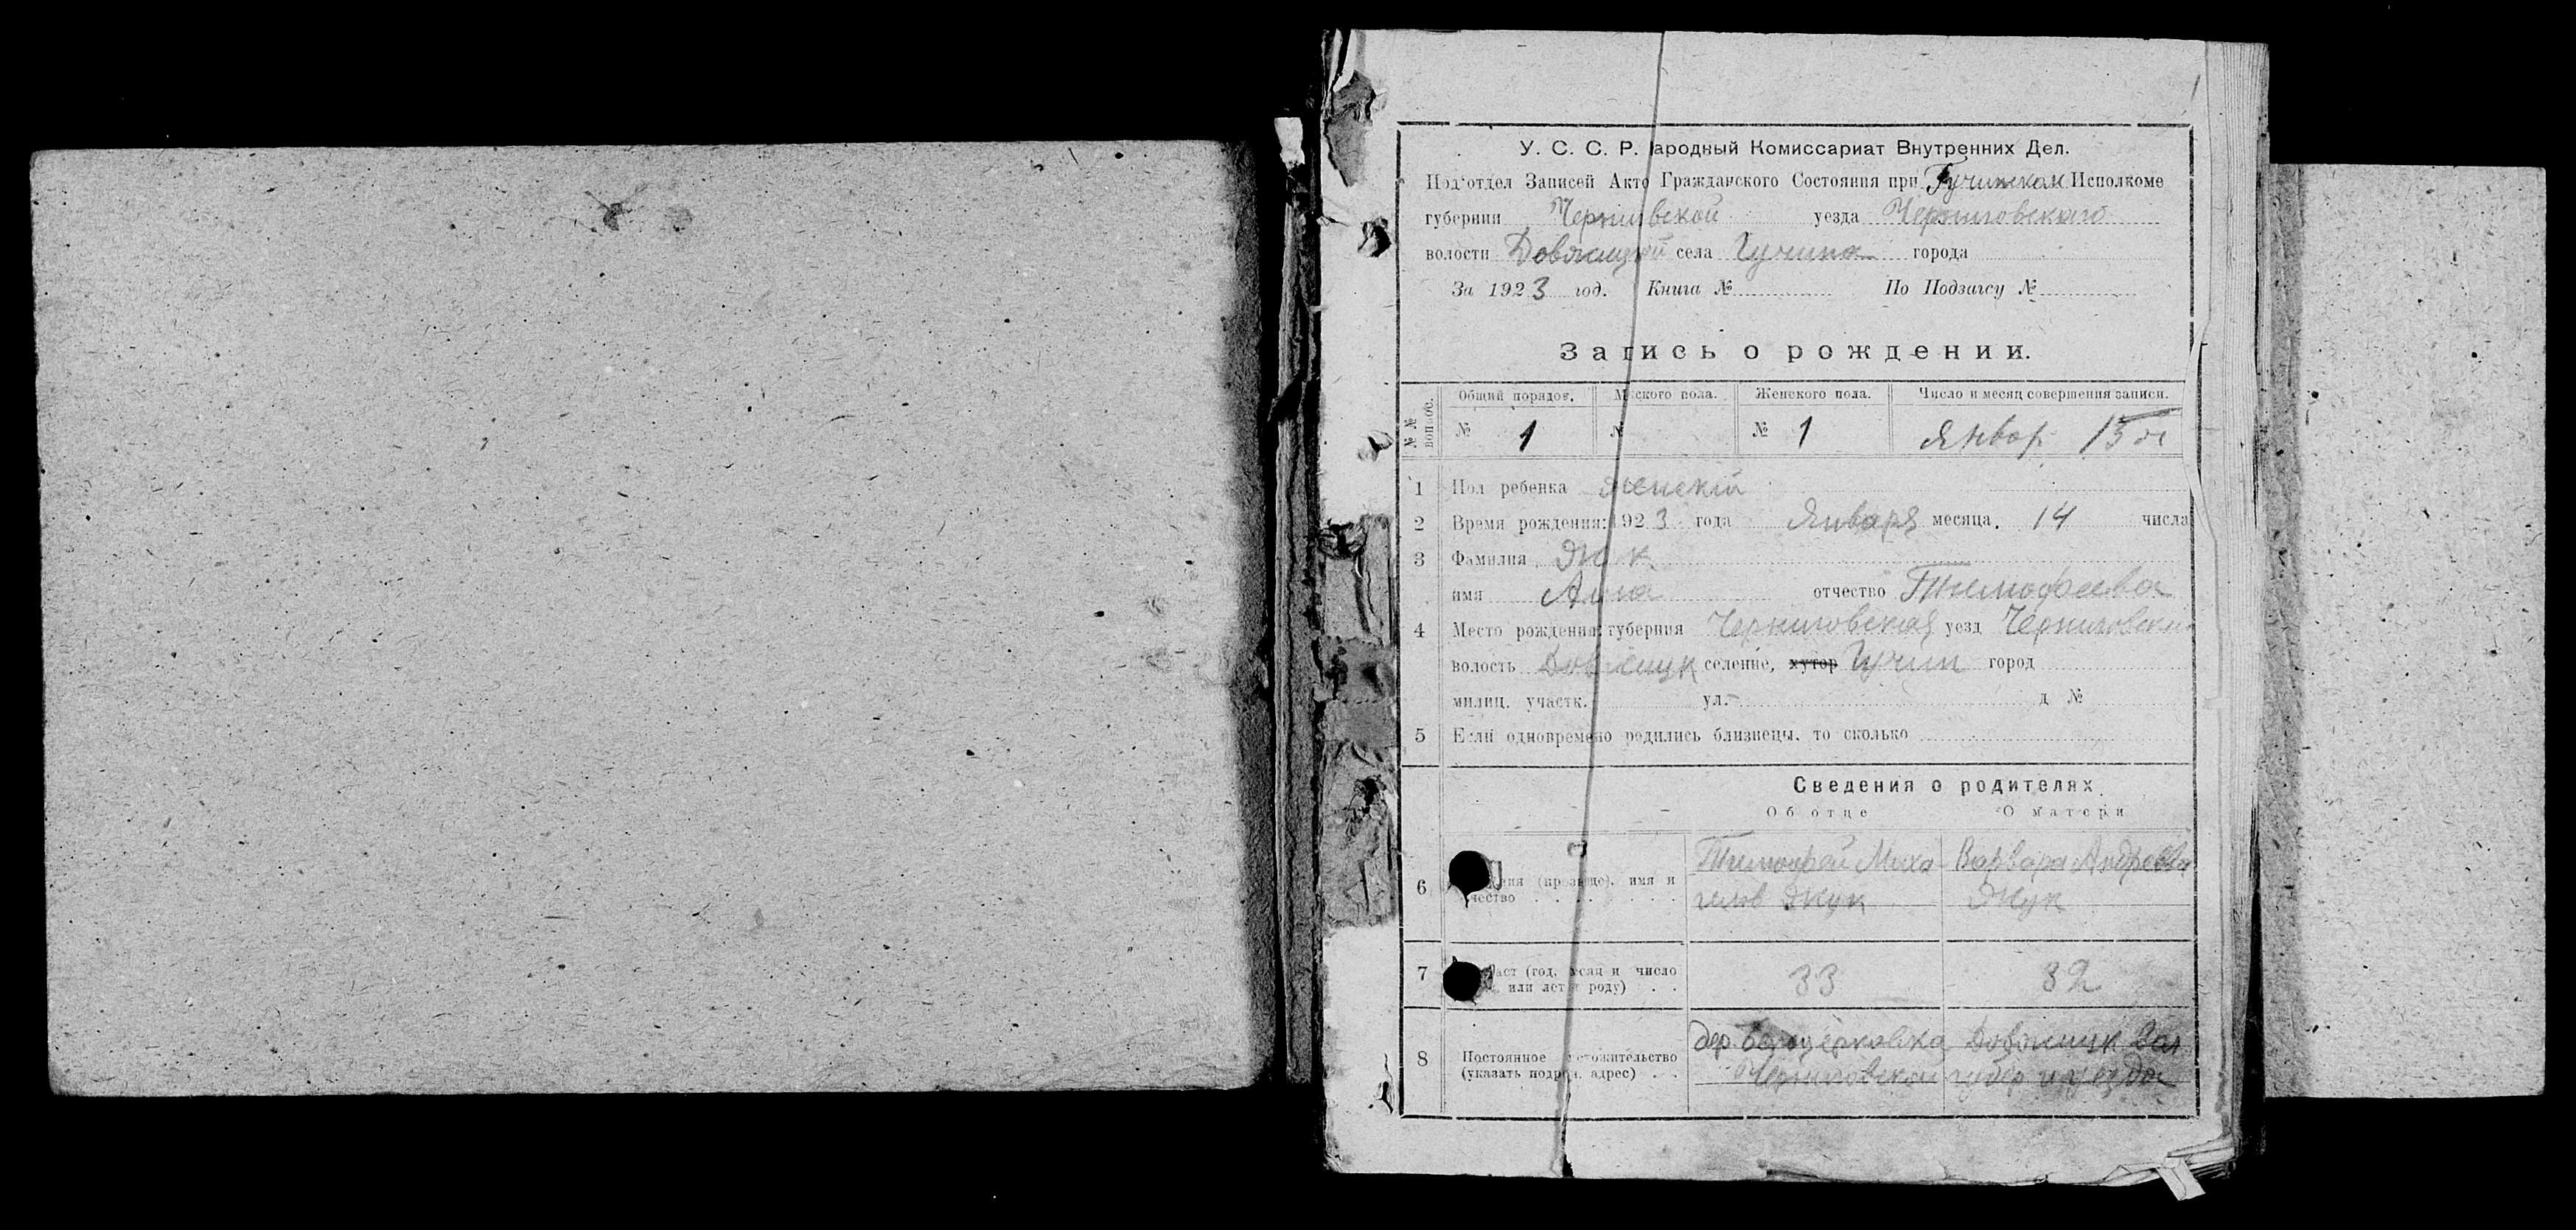 1
У. С. С. Р. ародный Комиссариат Внутренних Дел.
Подотдел Записей Акто Гражданского Состояния при Гучинском Исполкоме
губернии Черниговской уезда Черниговского
волости села Гучина города
За 1923 год. Книга № По Подзагсу №
Запись о рождении.
№ № Общий порядов. М ского пола. Женского пола. Число и месяц совершения записи.
№ 1 № № 1 Январ 15
1 Пол ребенка Женскій
2 Время рождения: 1923 года Января месяца. 14 числа
3 Фамилия Жук
имя отчество Тимофеева
4 Место рождения: губерния Черниговская уезд Черниговский
волость селение, хутор Гучин город
милиц. участк. ул. д №
5 Если одновремено родились близнецы, то сколько
Сведения о родителях.
Об отце О матери
6 (прозвище), имя и Тимофей Миха Варвара Андреева
чество йлов Жук Жук
7 (год, месяц и число 33 32
или лет роду)
8 Постоянное дер. вол
(указать подроб. адрес) Черниговской губер и уезда